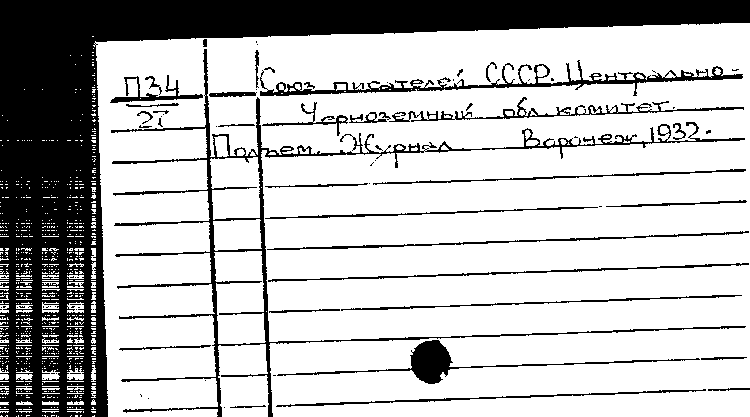 П34 Союз писателей СССР. Центрально-
2I Черноземный обл. комитет.
Подъем. Журнал. Воронеж, 1932.